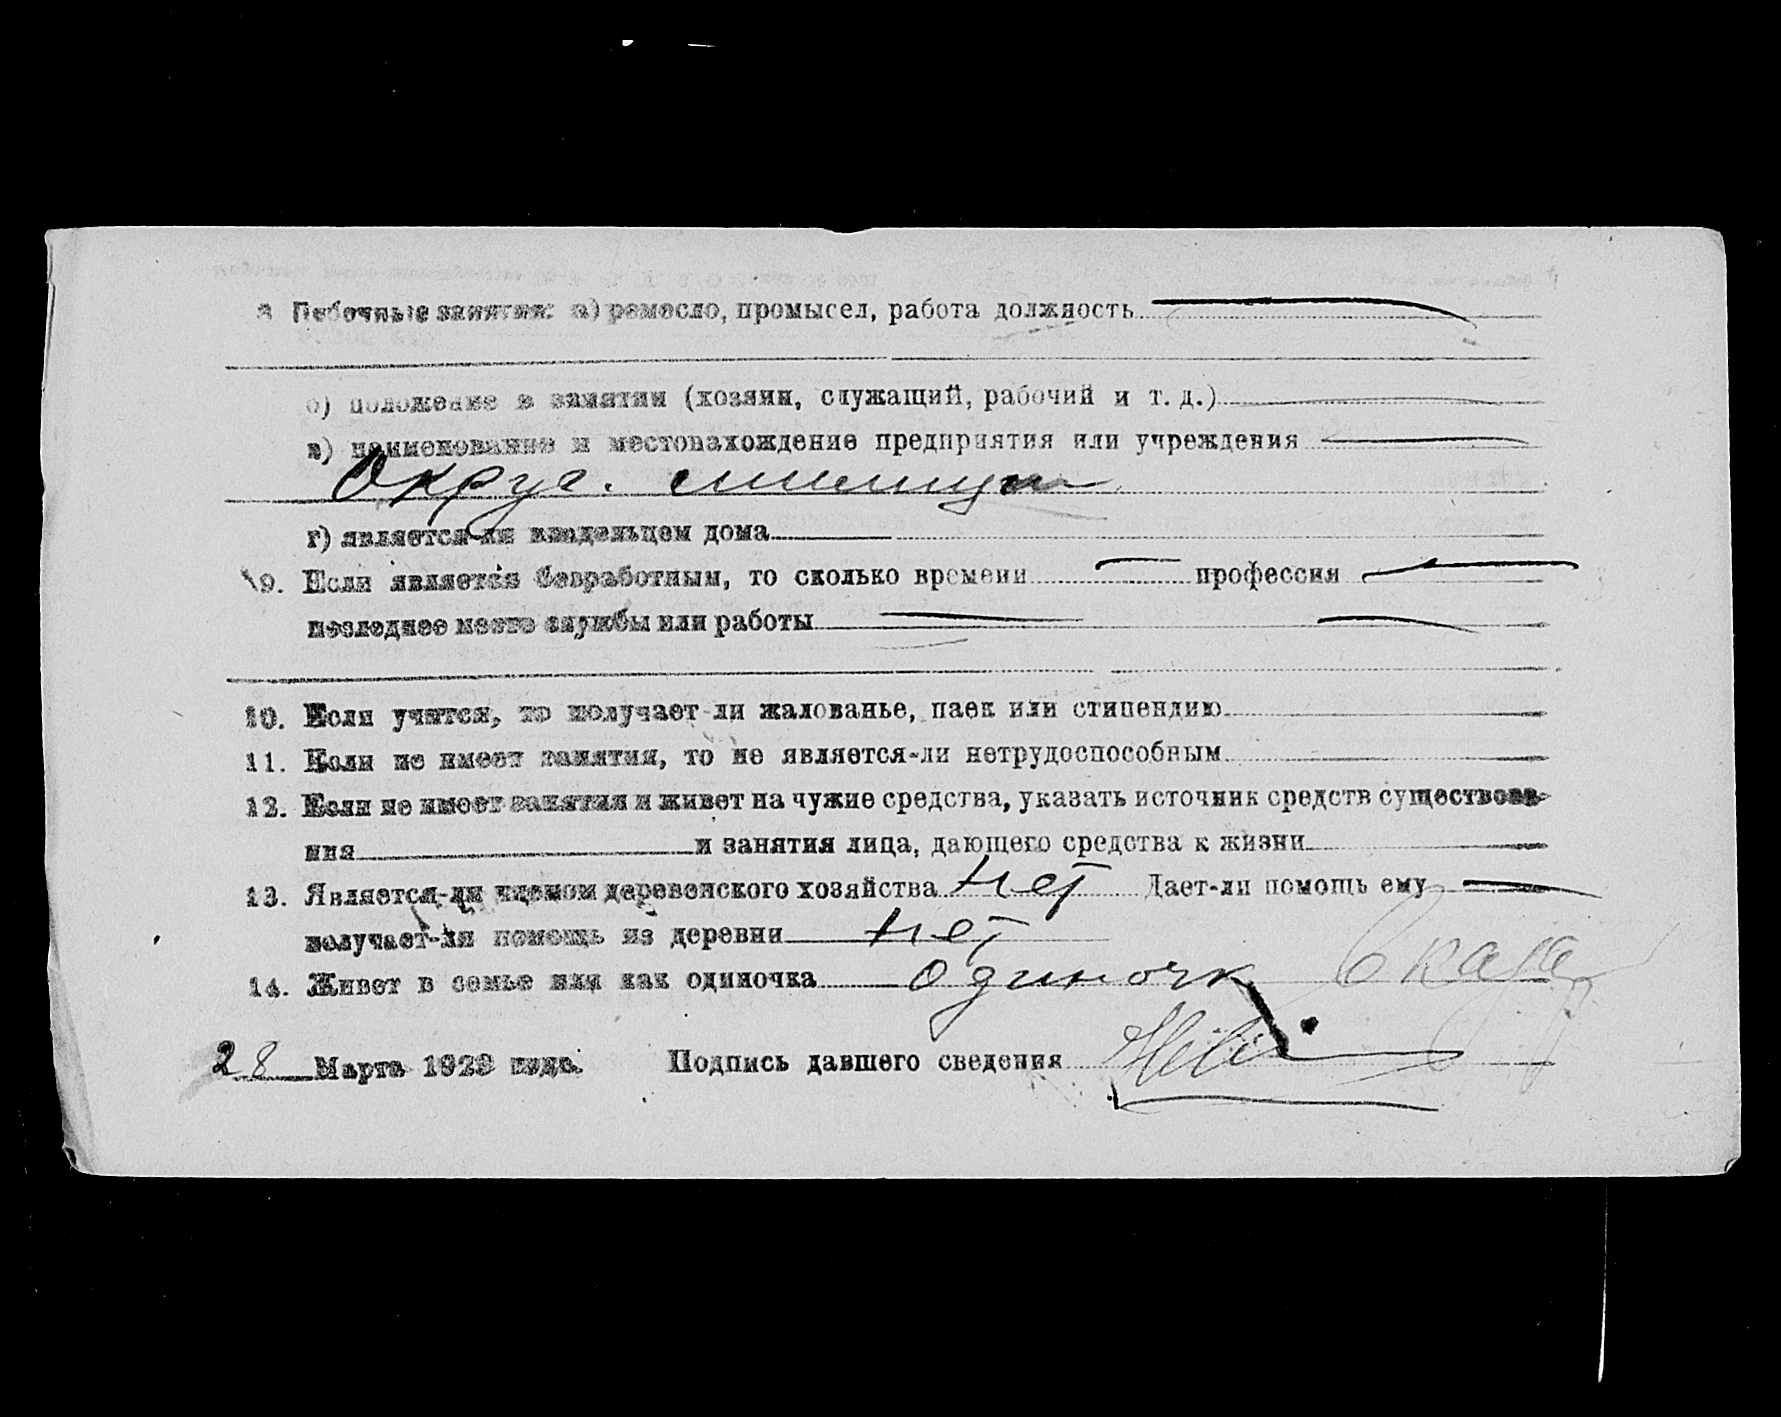 8 Побочные занятия: а) ремесло, промысел, работа должность
б) положение в занятии (хозяин, служащий, рабочий и т. д.)
в) наименование и местонахождение предприятия или учреждения
Округ. милиция
г) является-ли владельцем дома
9. Если является безработным, то сколько времени профессия
последнее место службы или работы
10. Если учится, то получает-ли жалованье, паек или стипендию
11. Если не имеет занятия, то не является-ли нетрудоспособным
12. Если не имеет занятия и живет на чужие средства, указать источник средств существова-
ния и занятия лица, дающего средства к жизни
13. Является-ли членом деревенского хозяйства нет Дает-ли помощь ему
получает-ли помощь из деревни нет
14. Живет в семье или как одиночка одиночк
28 Марта 1923 года. Подпись давшего сведения